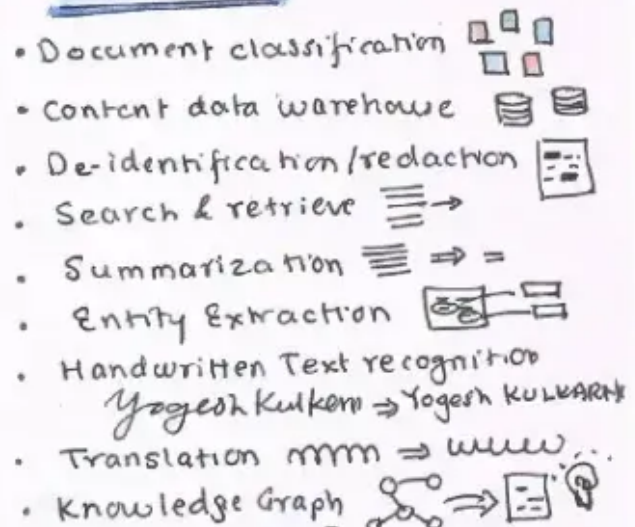 • Document classification
• Content data warehouse
• De-identification/redaction
• Search & retrieve
• Summarization
• Entity Extraction
• Handwritten Text recognition
Yogesh Kulkarni ⇒ Yogesh KULKARNI
• Translation mmm ⇒ uuuu...
• Knowledge Graph